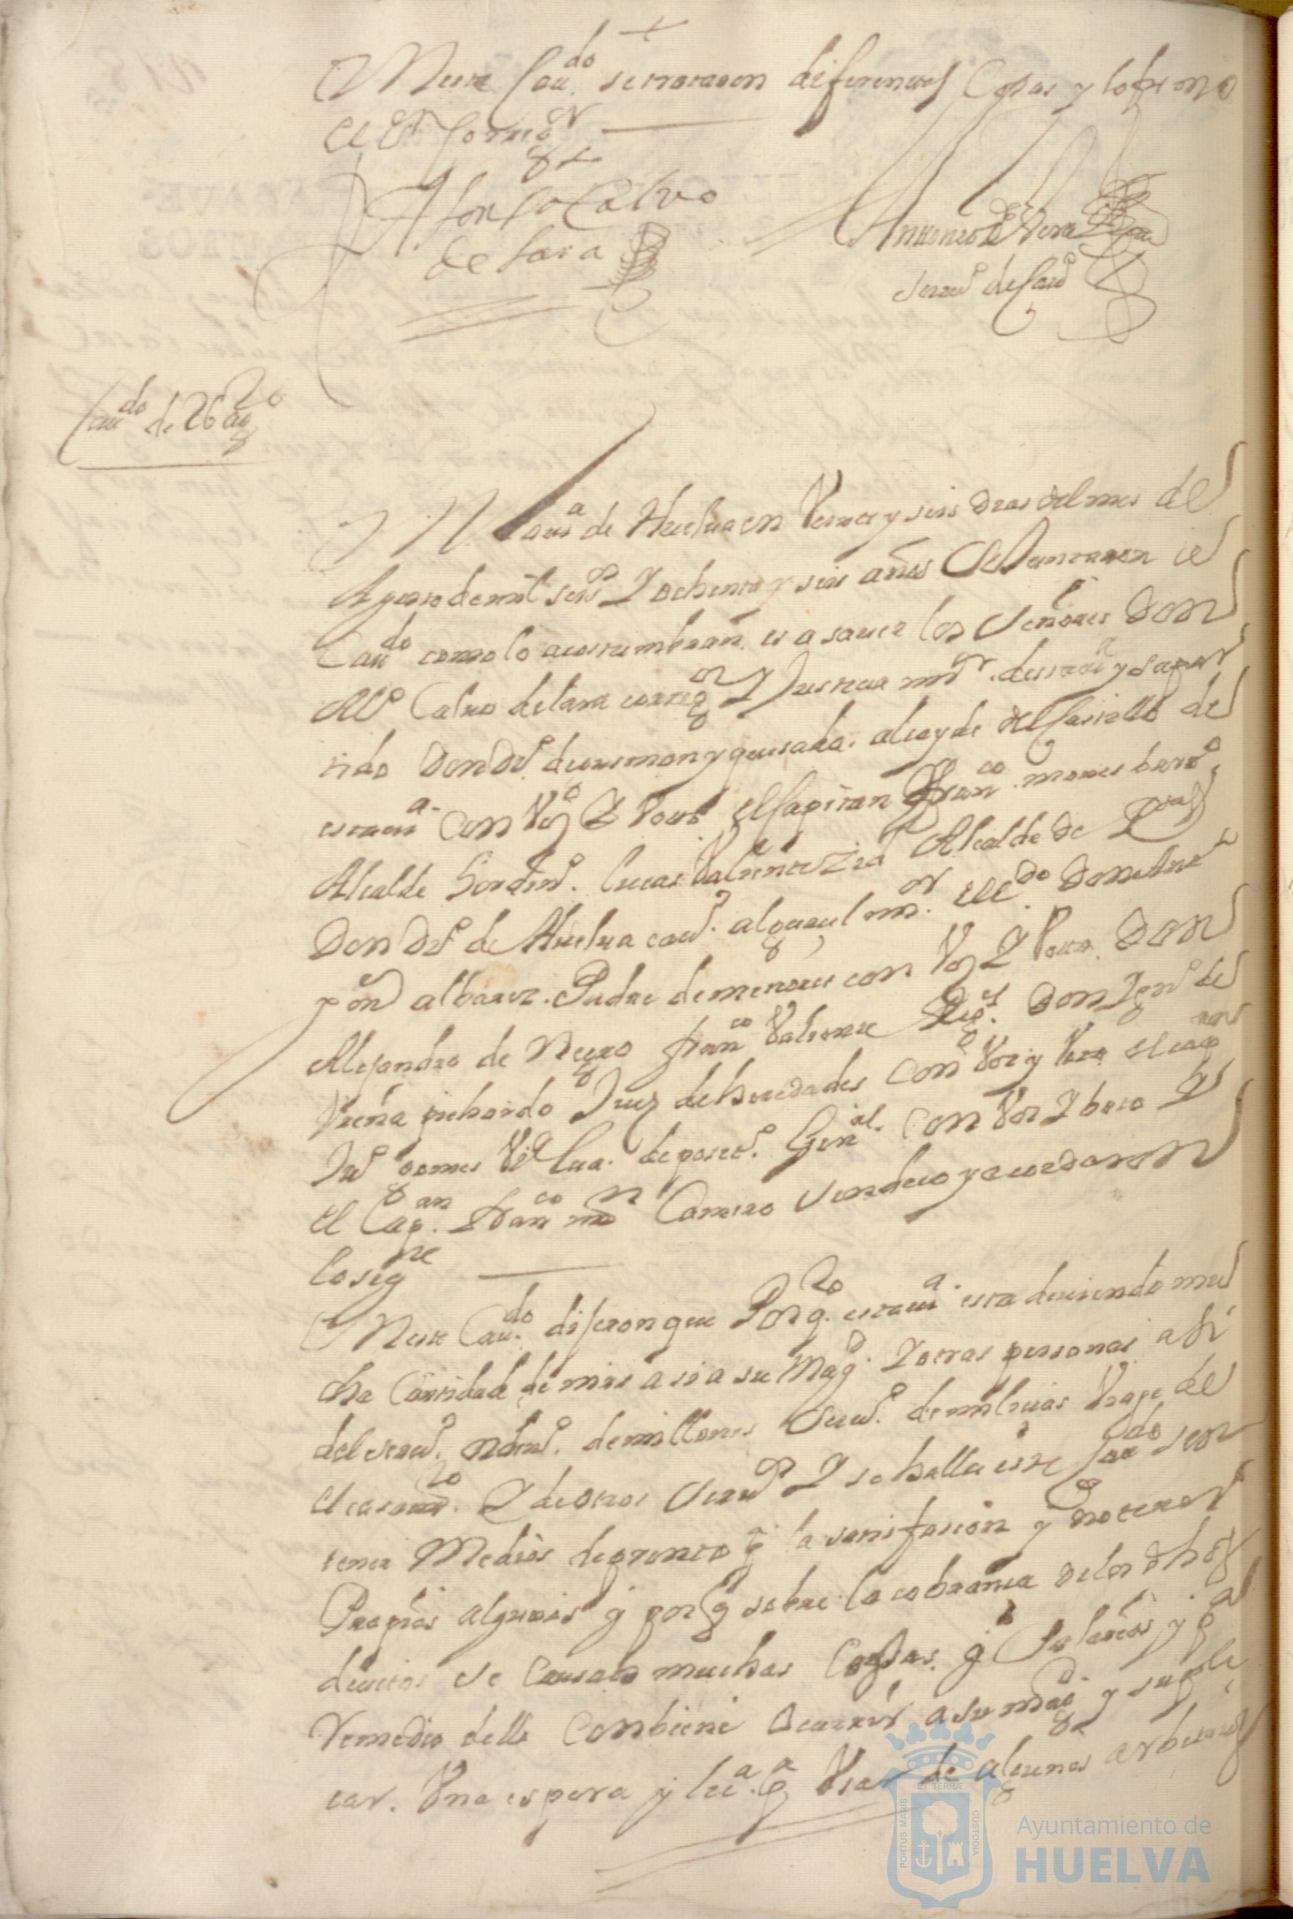 En este Cavdo se trataron diferentes Cosas y lo firmo
el Sr Corregor
Alonso Calvo
de lara
Antonio de Vera
serivo de Cavdo
Cavdo de 26 de agto
En la villa de Huelva en Veinte y seis dias del mes de
Agosto de mil seisos Y ochenta y seis años Se Juntaron a
Cavdo como lo acostumbran es a saver los Señores Don
Alo Calvo de lara corregor Y Justicia mor desta va y su par
tido Don Do de usman y quesada alcayde del Castillo de
esta va con Voz Y Voto el Capitan Franco
Alcalde hordino Lucas Valiente Alcalde de
Don Do de Huelva alguacil mor el Cdo Don
albarez Padre de menores con Voz Y Voto Don
Alejandro de Negro Franco Valiente Rexor Don de
Vreña pichardo Juez de heredades con Voz y Voto el cap
Juo gomes deposito Genal con Voz Y boto Y
el Capan Franco mn Camero Sindico y acordaron
lo sigte
En este Cavdo dijeron que Por qto esta va esta deviendo mu
cha Cantidad de mrs asi a su Magd Y otras personas asi
del servo hordino de millones Servo de milicias
el casamto Y de otros Servos Y se halla este Cavdo sin
tener Medios de pronto pa la satisfasion y no tener
Propios algunos y porq sobre la cobranza de los dhos
devitos se causan muchas Costas y Salarios y pa
remedio dello Combiene Ocurrir a su magd y supli
car Una espera y lica pa Usar de algunos arbitrios
PORTUS MARIS
ET TERRAE
CUSTODIA
Ayuntamiento de
HUELVA